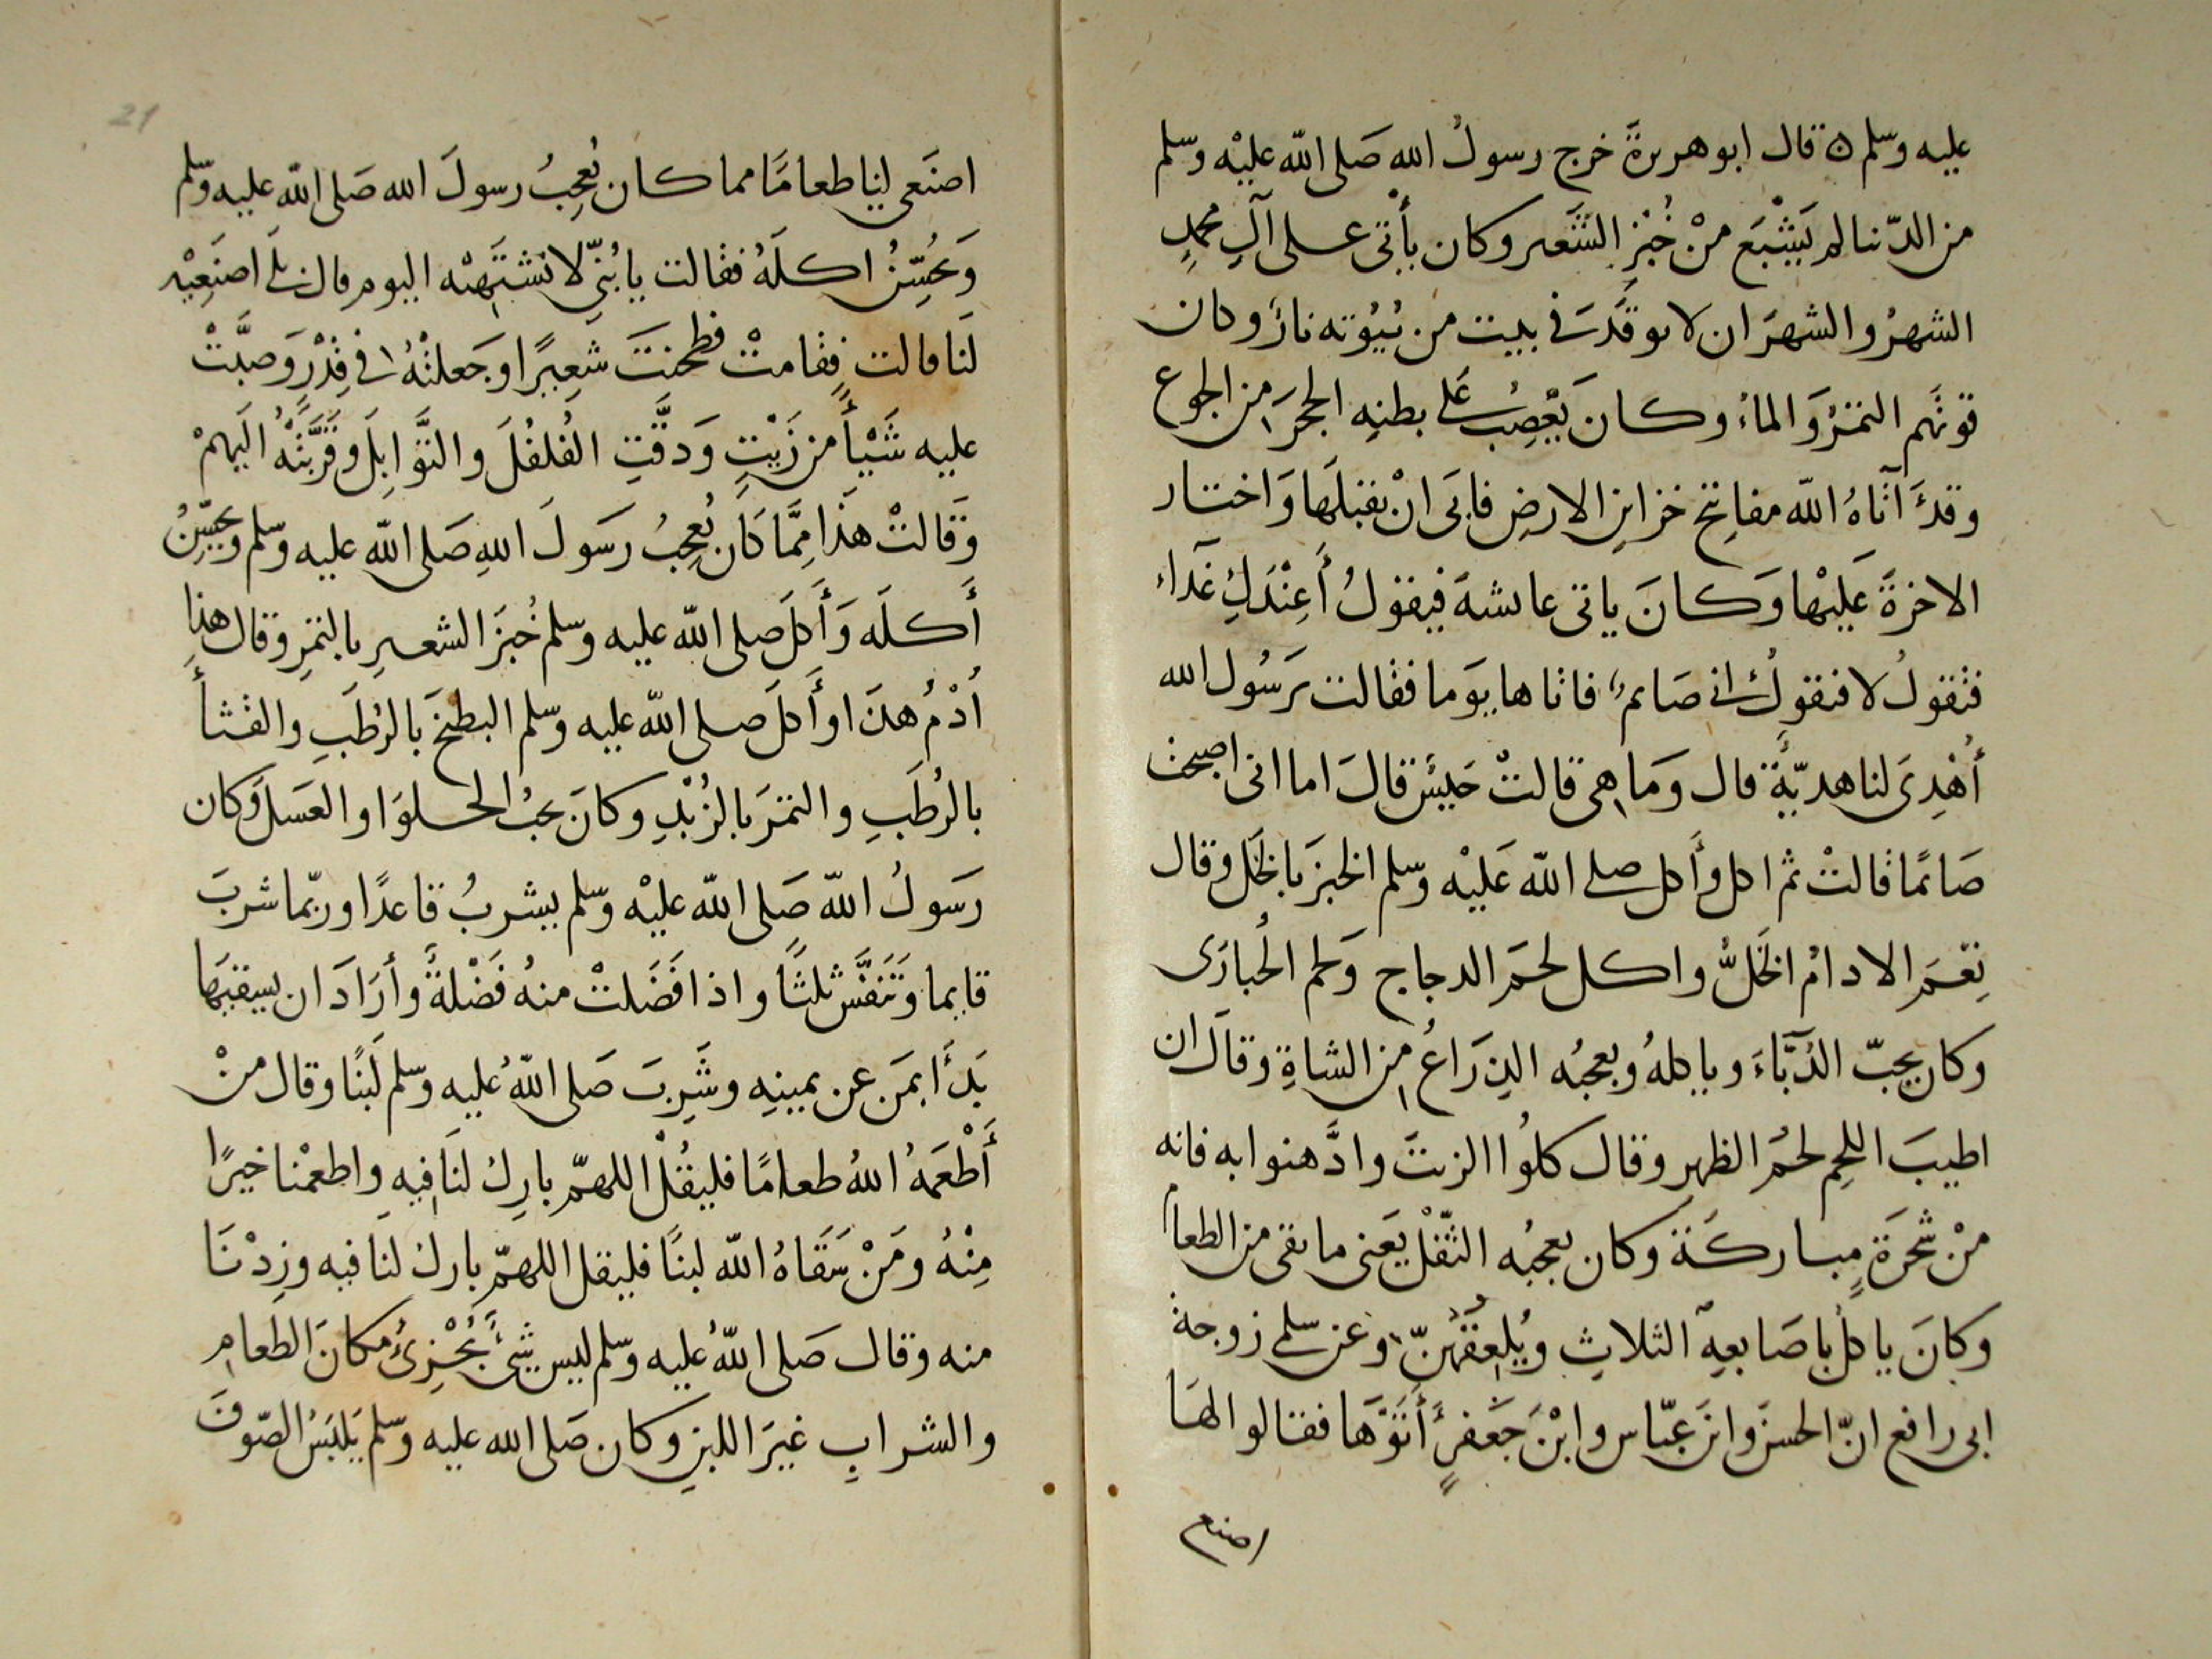 عليه وسلم ه قال ابو هريرةَ خرج رسولُ الله صَلى الله عليْه وسلم
من الدّنيا لم يَشْبَع منْ خُبْزِ الشَّعير وكان يأْتى على آلِ محمدٍ
الشهرُ والشهرَان لا توقَدُ فى بيت من بُيُوته نارٌ وكان
قوتهَم التمرُ وَالماءُ وكان يَعْصِبُ عَلى بطنِه الحجرَ من الجوع
وقدْ آتاهُ الله مفاتيح خزاينِ الارضِ فابَى انْ يقبلَها وَاختار
الاخرةَ عَليْها وَكانَ ياتى عايشةَ فيقولُ أَعِنْدَكِ غَدآء
فتقولُ لا فيقولُ انى صَايمٌ فاتاها يوَما فقالت يرَسُول الله
أُهْدِىَ لنا هديّةٌ قال وَما هى قالتْ حَيْسٌ قالَ اما انى اصبحت
صَائمًا قالتْ ثم اكل وأَكل صلى الله عَليْه وسلم الخبزَ بالخَل وقال
نِعْمَ الادامُ الخَلُّ واكل لحمَ الدجاج وَلحم الحُبارَى
وكان يحبّ الدُّبَّاءَ وياكلهُ ويعجبُه الذِرَاعُ من الشاةِ وقالَ ان
اطيبَ اللحمِ لحمُ الظهرِ وقال كلُوا الزيتَ وادَّهنوا به فانه
منْ شجَرَةٍ مباركَة وكان يعجبُه الثّفْل يَعنى ما بقى من الطعام
وكانَ ياكلُ باصَابعِه الثلاثِ ويُلْعِقُهُنّ وعن سلمى زوجة
ابى رافع انّ الحسنَ وابنَ عبّاس وابْنَ جَعفرٍ أَتَوْهَا فقالوا لهَا
اصنع
اصنَعى لنا طعامًا مما كان يُعجِبُ رسولَ الله صَلى الله عليه وسلم
وَيحُسِّنُ اكلَهُ فقالت يا بُنَىّ لا تشتَهِيْه اليوم قال بلَى اصنَعِيْه
لَنا قالت فقامتْ فطحنتَ شَعِيرًا وجَعلتْهُ فى قِدْرٍ وَصبَّتْ
عليه شَيْأً من زَيْتٍ وَدقَّتِ الفُلفُلَ والتوَّابِلَ وقرَّبَتْهُ اليَهمْ
وَقَالتْ هَذَا مِمَّا كَان يُعجِبُ رَسَولَ اللهِ صَلى الله عليه وسلم ويحُسِّنُ
أَكلَه وَأَكلَ صلى الله عليه وسلم خُبزَ الشعيرِ بالتمرِ وقال هذا
اُدْمُ هذَا وأَكلَ صلى الله عليه وسلم البطيخَ بالرُطَبِ والقثأَ
بالرُطَبِ والتمرَ بالزُبْدِ وكانَ يحبُ الحلوَا والعسَلَ وَكان
رَسَولُ الله صَلى الله عليْه وسلم يشربُ قاعدًا وربّما شربَ
قايما وَتَنفَّس ثلثًا واذا فَضَلتْ منهُ فَضْلةٌ وأرَادَ ان يسقيَها
بَدَأَ بمَن عن يمينِه وشَرِبَ صَلى اللهُ عليه وسلم لَبنًا وقال منْ
أَطْعَمهُ اللهُ طعامًا فليقُلْ اللهمّ بارِك لنَا فيهِ واطعمْنا خيرًا
مِنْهُ ومَنْ سَقَاهُ الله لبنًا فليقل اللهمّ بارك لنَا فيه وزِدْنَا
منه وقال صَلى اللهُ عليه وسلم ليس شَىْءٌ يُجْزِئُ مكانَ الطعَامِ
والشرابِ غيرَ اللبنِ وكان صَلى الله عليه وسلم يَلبَسُ الصّوفَ